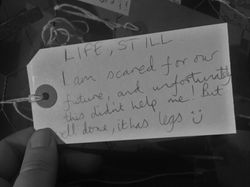 LIFE, STILL
I am scared for our
future, and unfortunately
this didn't help me! But
all done, it has legs